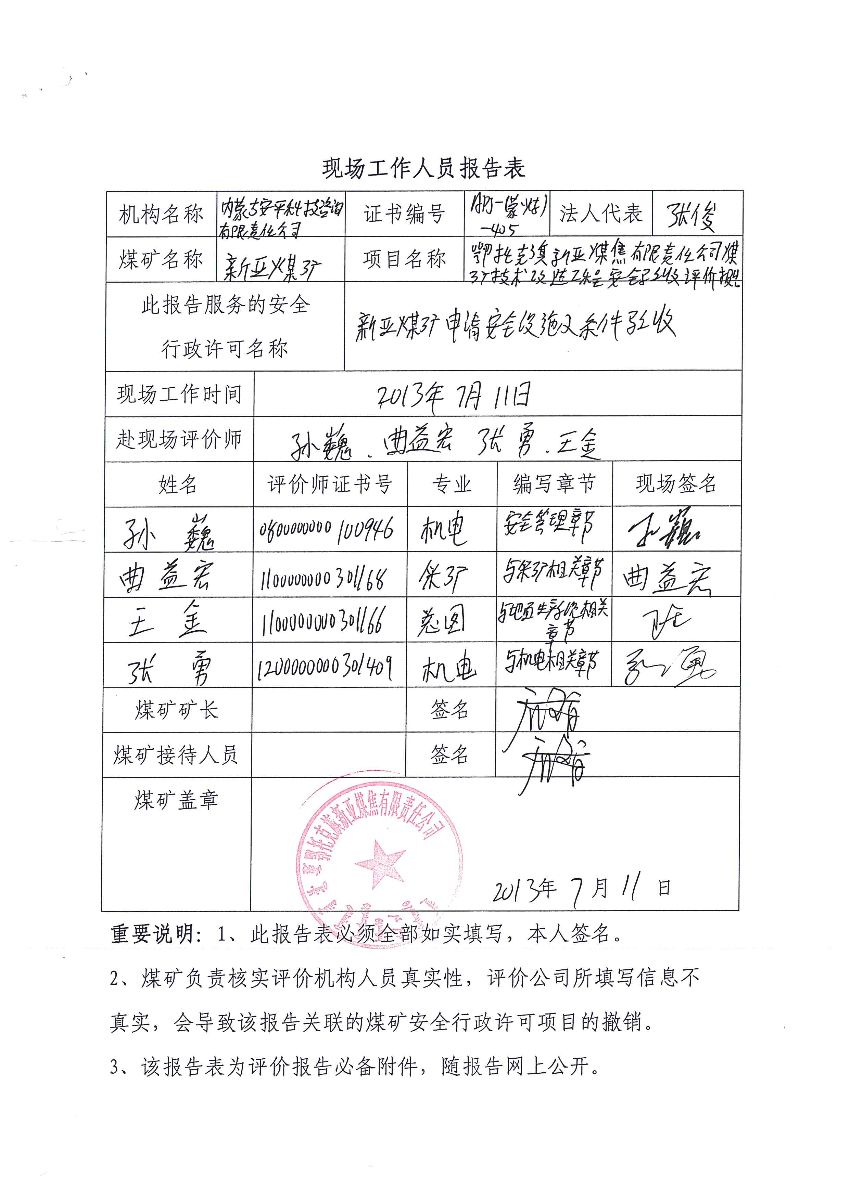 现场工作人员报告表
机构名称 内蒙古安平科技咨询有限责任公司 证书编号 APJ-(蒙煤)-405 法人代表 张俊
煤矿名称 新亚煤矿 项目名称 鄂托克旗新亚煤焦有限责任公司煤矿技术改造工程安全验收评价报告
此报告服务的安全
行政许可名称 新亚煤矿申请安全设施及条件验收
现场工作时间 2013年7月11日
赴现场评价师 孙巍、曲益宏 张勇、王金
姓名 评价师证书号 专业 编写章节 现场签名
孙巍 0800000000100946 机电 安全管理章节 孙巍
曲益宏 1100000000301168 采矿 与采矿相关章节 曲益宏
王金 1100000000301166 总图 相关章节
张勇 1200000000301409 机电 与机电相关章节 张勇
煤矿矿长 签名
煤矿接待人员 签名
煤矿盖章
鄂托克旗新亚煤焦有限责任公司
2013年7月11日
重要说明：1、此报告表必须全部如实填写，本人签名。
2、煤矿负责核实评价机构人员真实性，评价公司所填写信息不
真实，会导致该报告关联的煤矿安全行政许可项目的撤销。
3、该报告表为评价报告必备附件，随报告网上公开。